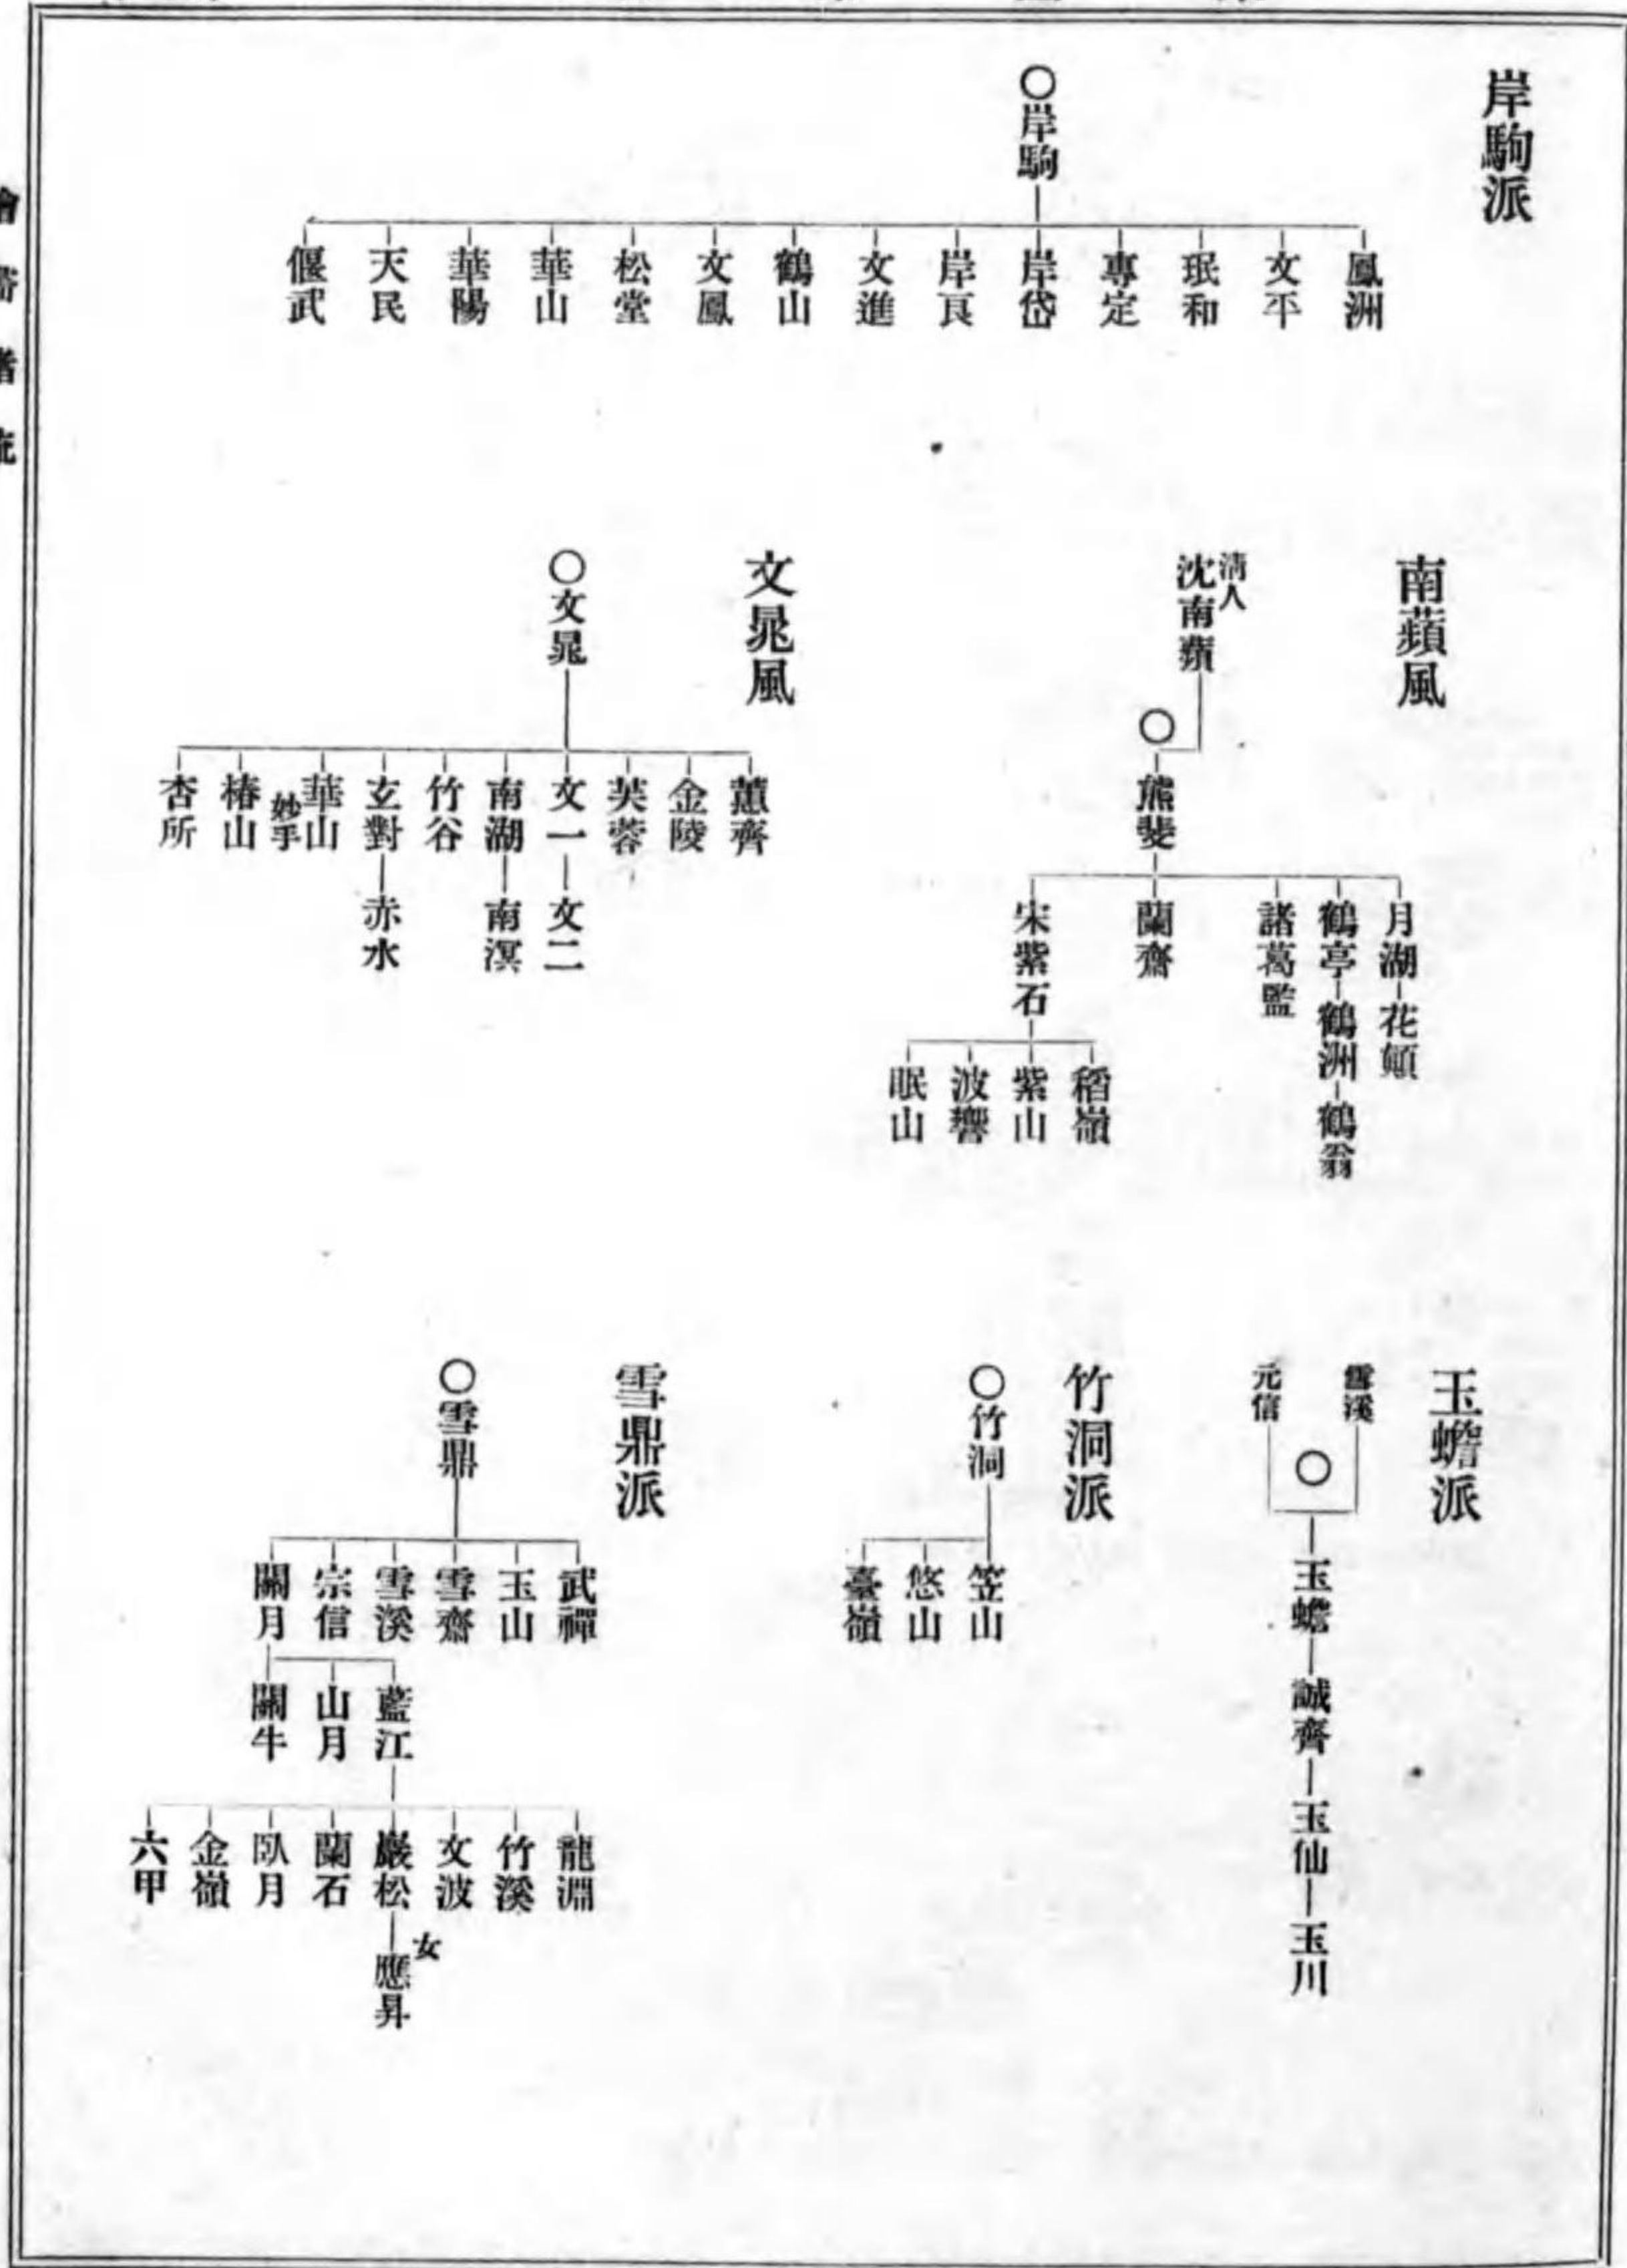 岸駒派
○岸駒
鳳洲
文平
珉和
專定
岸岱
岸良
文進
鶴山
文鳳
松堂
華山
華陽
天民
偃武
南蘋風
清人
沈南蘋
○
熊斐
月湖―花顚
鶴亭―鶴洲―鶴翁
諸葛監
蘭齋
宋紫石
稻嶺
紫山
波響
眠山
文晁風
○文晁
蕙齊
金陵
芙蓉
文一―文二
南湖―南溟
竹谷
玄對―赤水
華山
妙手
椿山
杏所
玉蟾派
雪溪
元信
○
玉蟾―誠齊―玉仙―玉川
竹洞派
○竹洞
笠山
悠山
臺嶺
雪鼎派
○雪鼎
武禪
玉山
雪齋
雪溪
宗信
關月
藍江
山月
關牛
龍淵
竹溪
文波
巖松―應昇
女
蘭石
臥月
金嶺
六甲